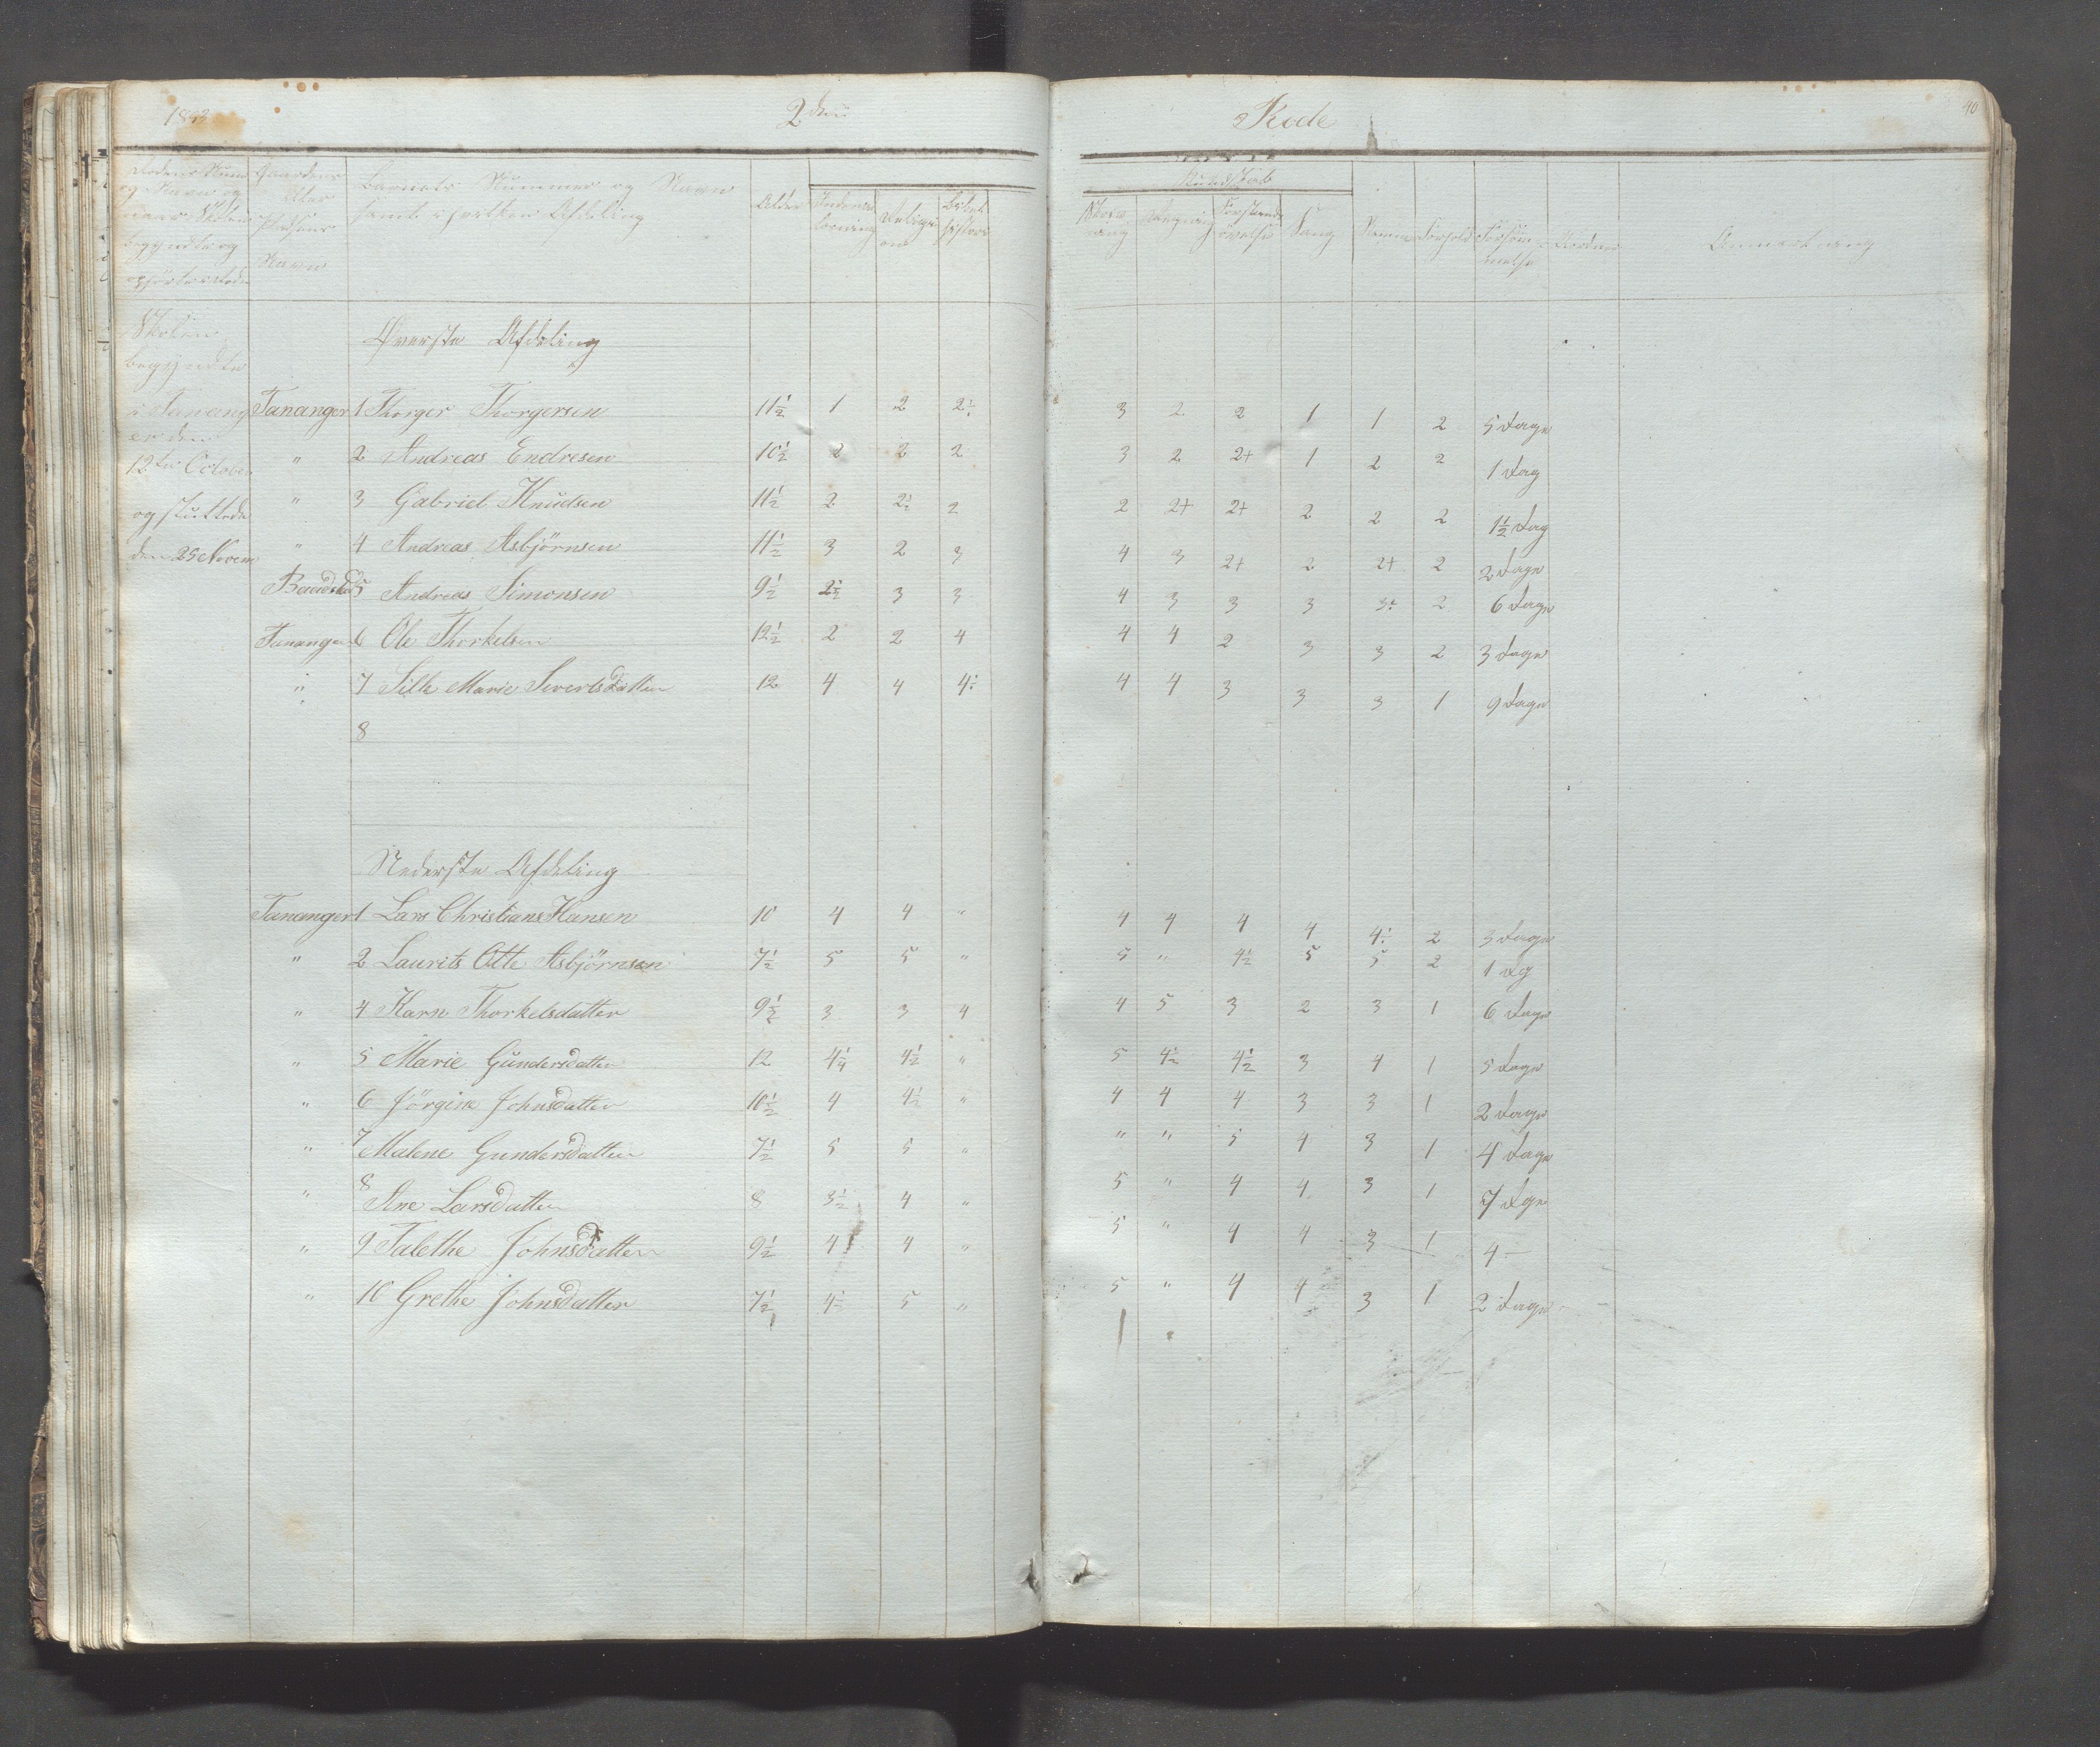 2den Rode
40
Rodens Num
og Navn og
naar Skolen
begyndte og
Gaardens
eller
Pladsens
Navn
Barnets Nummer og Navn
samt i hvilken Afdeling
Alder
Indenad
læsning
Religi
on
Bibel
historie
Kundskab
Skriv
ning
Regning
Forstands
övelse
Sang
Forhold
Forsöm
melse
Anmærkning
Skolen
begyndte
i Tanang
er den
12te October
og sluttede
den 25 Novem
Överste Afdeling
Tananger 1 Thorger Thorgersen 11½ 1 2 2÷ 3 2 2 1 1 2 5 Dage
" 2 Andreas Endresen 10½ 2 2 2 3 2 2+ 1 2 2 1 Dag
" 3 Gabriel Knudsen 11½ 2 2÷ 2 2 2+ 2+ 2 2 2 1½ Dag
" 4 Andreas Asbjörnsen 11½ 3 2 3 4 3 2+ 2 2+ 2 2 Dage
5 Andreas Simonsen 9½ 2½ 3 3 4 3 3 3 3÷ 2 6 Dage
Tananger 6 Ole Thorkelsen 12½ 2 2 4 4 4 2 3 3 2 3 Dage
" 7 Sille Marie Sivertsdatter 12 4 4 4÷ 4 4 3 3 3 1 9 Dage
8
Nederste Afdeling
Tananger 1 Lars Christians Hansen 10 4 4 " 4 4 4 4 4÷ 2 3 Dage
" 2 Laurits Otte Asbjörnsen 7½ 5 5 " 5 " 4½ 5 5 2 1 Dg
" 4 Karn Thorkelsdatter 9½ 3 3 4 4 5 3 2 3 1 6 Dage
" 5 Marie Gundersdatter 12 4¼ 4½ " 5 4½ 4½ 3 4 1 5 Dage
" 6 Jörgine Johnsdatter 10½ 4 4½ " 4 4 4 3 3 1 2 Dage
" 7 Malene Gundersdatter 7½ 5 5 " " " 5 4 3 1 4 Dage
" 8 Ane Larsdatter 8 3½ 4 " 5 " 4 4 3 1 7 Dge
" 9 Talethe Johnsdatter 9½ 4 4 " 5 " 4 4 3 1 4 —
" 10 Grethe Johnsdatter 7½ 4÷ 5 " 5 " 4 4 3 1 2 Dage